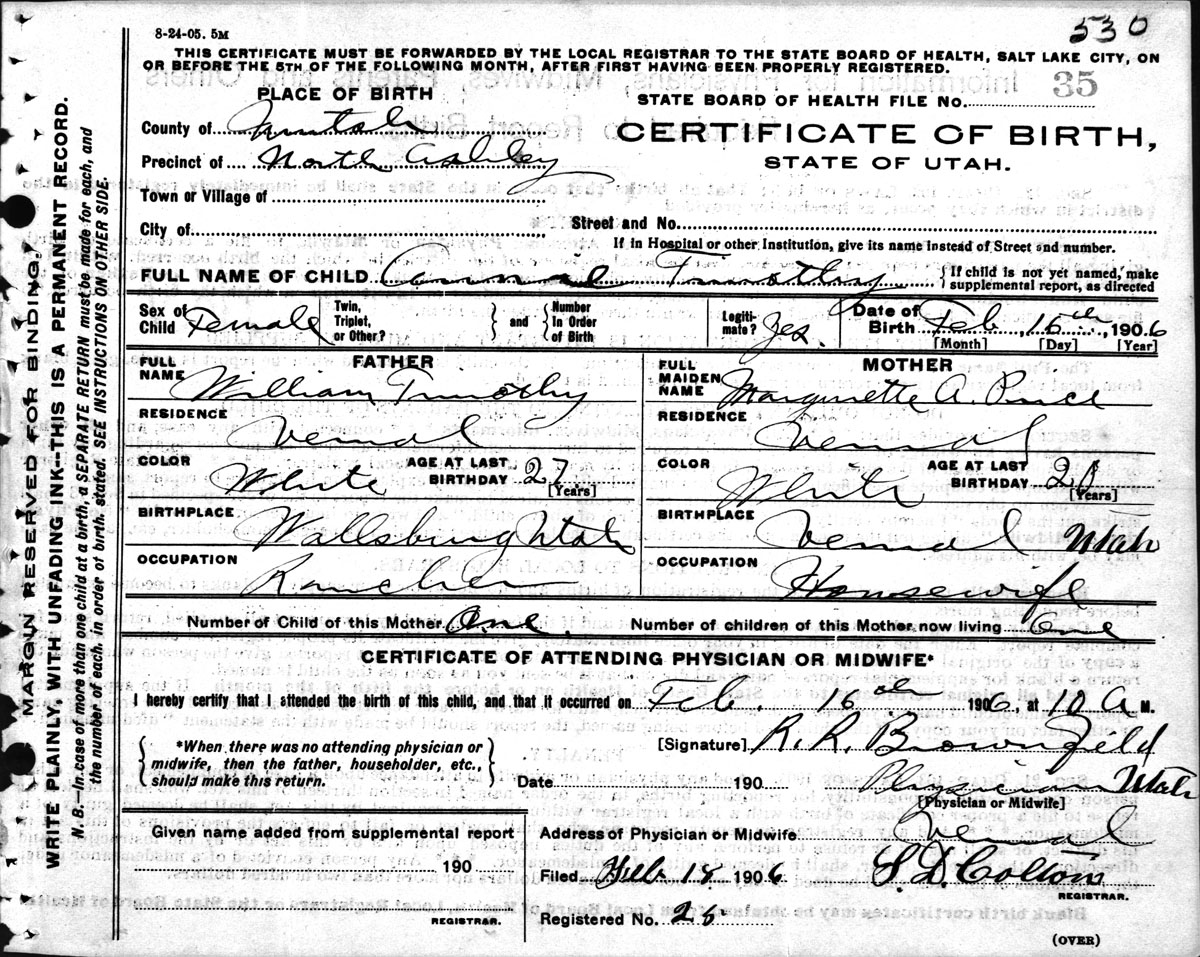 8-24-05. 5M
530
THIS CERTIFICATE MUST BE FORWARDED BY THE LOCAL REGISTRAR TO THE STATE BOARD OF HEALTH, SALT LAKE CITY, ON
OR BEFORE THE 5TH OF THE FOLLOWING MONTH, AFTER FIRST HAVING BEEN PROPERLY REGISTERED.
PLACE OF BIRTH
STATE BOARD OF HEALTH FILE NO. 35
County of
Precinct of North Ashley
CERTIFICATE OF BIRTH,
STATE OF UTAH.
Town or Village of
City of Street and No.
If in Hospital or other Institution, give its name instead of Street and number.
FULL NAME OF CHILD Timothy {If child is not yet named, make
supplemental report, as directed
Sex of Child Female Twin, Triplet, or Other? } and { Number In Order of Birth Legiti-mate? Yes. Date of Birth Feb 16th, 1906
[Month] [Day] [Year]
FATHER
FULL NAME William Timothy
RESIDENCE Vernal
COLOR White AGE AT LAST BIRTHDAY 27 [Years]
BIRTHPLACE Wallsburg Utah
OCCUPATION Rancher
MOTHER
FULL MAIDEN NAME A.
RESIDENCE Vernal
COLOR White AGE AT LAST BIRTHDAY [Years]
BIRTHPLACE Vernal Utah
OCCUPATION Housewife
Number of Child of this Mother One. Number of children of this Mother now living One
CERTIFICATE OF ATTENDING PHYSICIAN OR MIDWIFE*
I hereby certify that I attended the birth of this child, and that it occurred on Feb. 16th 1906, at 10 A M.
{*When there was no attending physician or
midwife, then the father, householder, etc.,
should make this return.}
[Signature] R. R. Brownfield
Date 190 Physician Utah
[Physician or Midwife]
Given name added from supplemental report
190
REGISTRAR.
Address of Physician or Midwife Vernal
Filed Feb 18 1906 S. D. Colton
REGISTRAR.
Registered No. 25
(OVER)
MARGIN RESERVED FOR BINDING.
WRITE PLAINLY, WITH UNFADING INK--THIS IS A PERMANENT RECORD.
N. B.—In case of more than one child at a birth, a SEPARATE RETURN must be made for each, and
the number of each, in order of birth, stated. SEE INSTRUCTIONS ON OTHER SIDE.